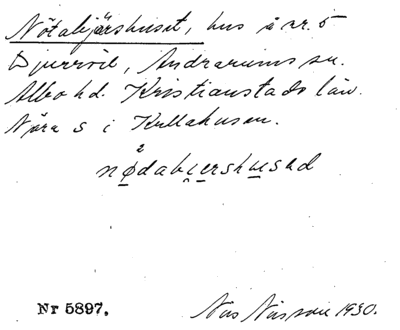 Nötabjärshuset, hus å nr. 5
Djurröd, Andrarums sn.
Albo hd. Kristianstads län.
Nära S i Kullahusen.
nødabjershused
Nr 5897.
Nils Nilsson 1930.